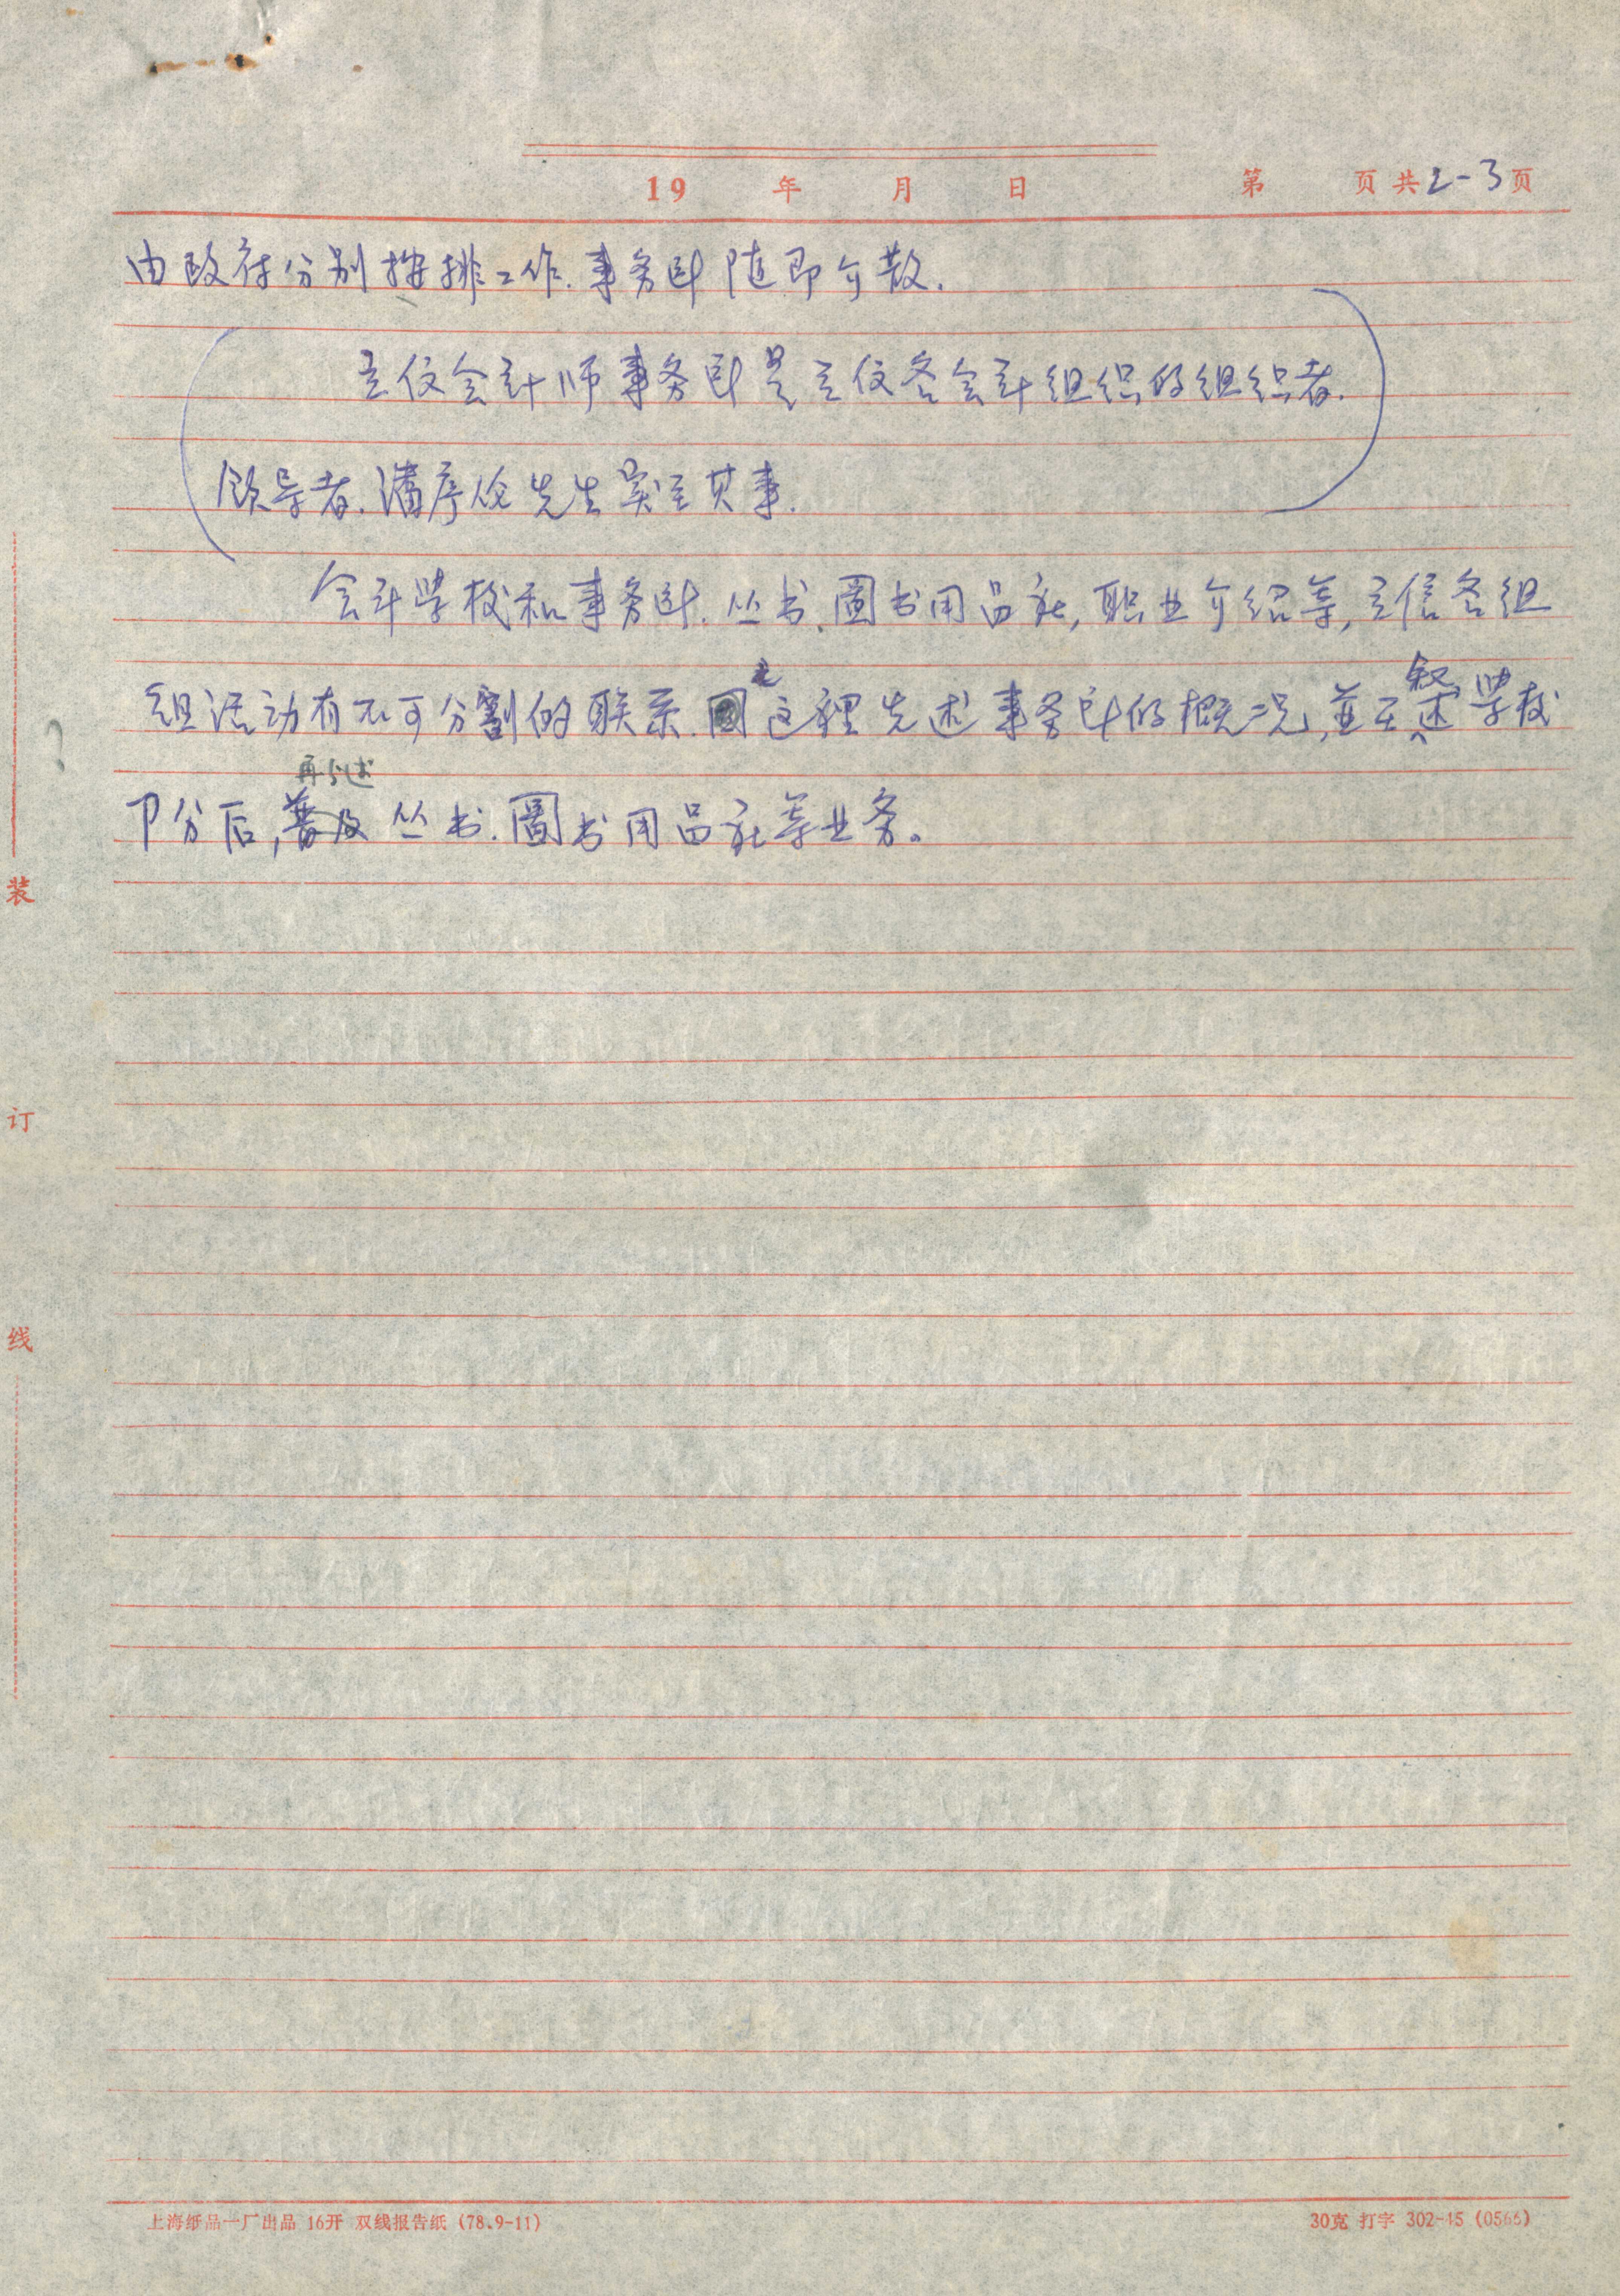 19 年 月 日 第 页共2-3页
由政府分别按排工作.事务所随即介散.
立信会计师事务所是立信各会计组织的组织者.
领导者.潘序伦先生实主其事.
会计学校和事务所.丛书.圖书用品社,职业介绍等,立信各组
组活动有不可分割的联系.这裡先述事务所的概况,並在叙述学校
再略述
卩分后,普及丛书.圖书用品社等业务。
装
订
线
上海纸品一厂出品 16开 双线报告纸 (78.9-11)
30克 打字 302-45 (0566)